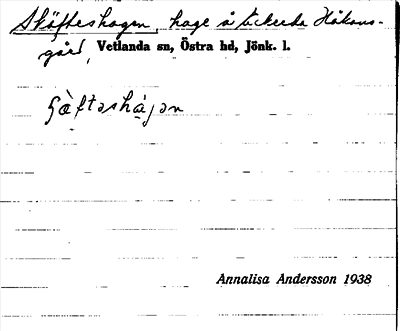 Sköfteshagen, hage å Lickerda Håkans-
gård, Vetlanda sn, Östra hd, Jönk. l.
Annalisa Andersson 1938